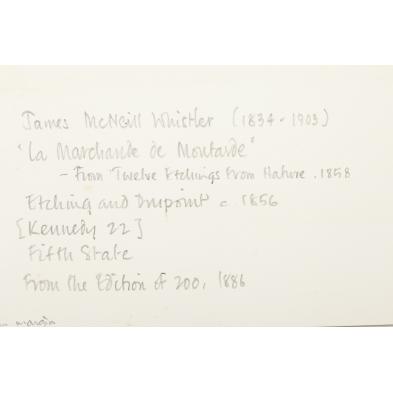 James McNeill Whistler (1834-1903)
"La Marchande de Moutarde"
- From Twelve Etchings From Nature. 1858
Etching and Drypoint c. 1856
[Kennedy 22]
Fifth State
From the Edition of 200, 1886
margin